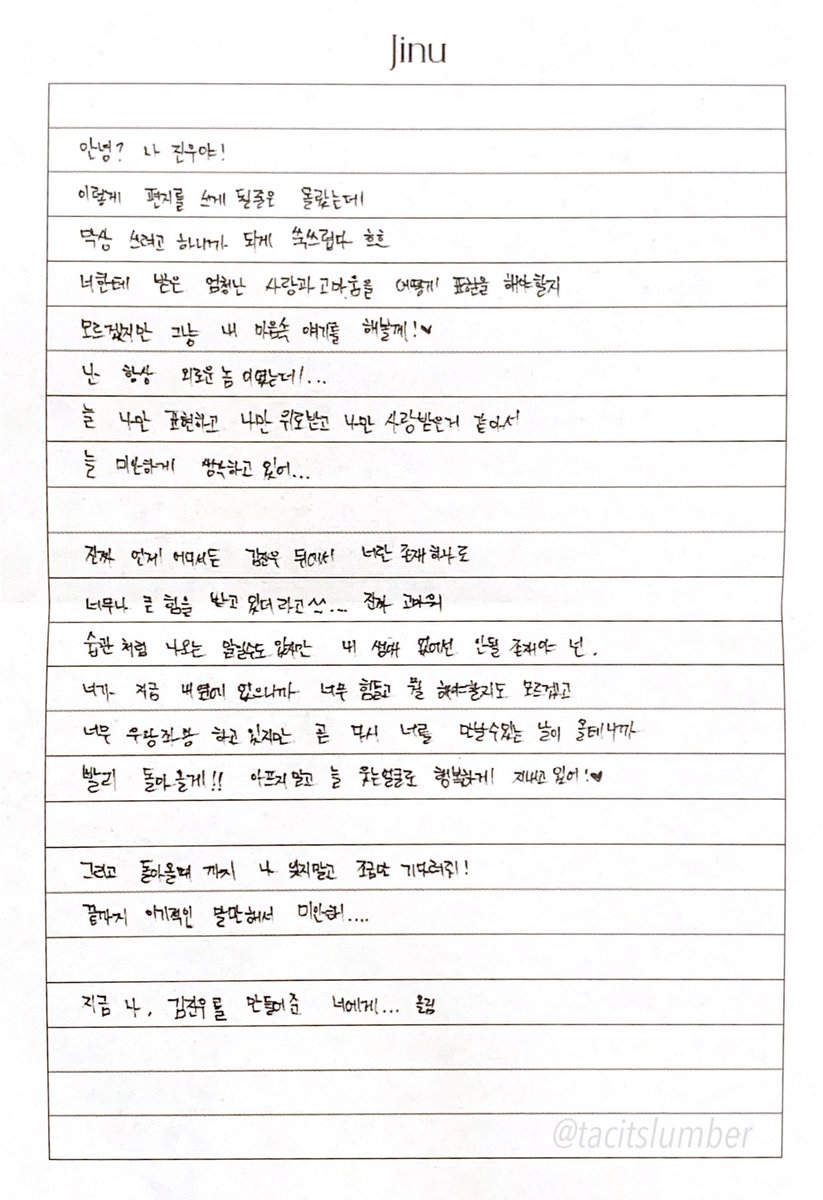 Jinu
안녕? 나 진우야!
이렇게 편지를 쓰게 될줄은 몰랐는데
막상 쓰려고 하니까 되게 쑥쓰럽다 흐흐
너한테 받은 엄청난 사랑과 고마움을 어떻게 표현을 해야할지
모르겠지만 그냥 내 마음속 얘기를 해볼게!♥
난 항상 외로운 놈 이였는데...
늘 나만 표현하고 나만 위로받고 나만 사랑받은거 같아서
늘 미안하게 생각하고 있어...
진짜 언제 어디서든 김진우 뒤에서 너란 존재 하나로
너무나 큰 힘을 받고 있더라고 진짜 고마워
습관 처럼 나오는 말일수도 있지만 내 생애 없어선 안될 존재야 넌.
너가 지금 내 옆에 없으니까 너무 힘들고 뭘 해야할지도 모르겠고
너무 우왕좌왕 하고 있지만 곧 다시 너를 만날수있는 날이 올테니까
빨리 돌아올게!! 아프지말고 늘 웃는얼굴로 행복하게 지내고 있어!♥
그리고 돌아올때 까지 나 잊지말고 조금만 기다려줘!
끝까지 이기적인 말만해서 미안해....
지금 나, 김진우를 만들어준 너에게... 올림
@tacitslumber